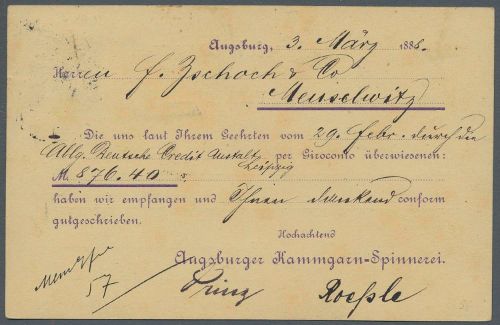 Augsburg, 3. März 1888.
Herren F. Zschoch & Co
Meuselwitz
Die uns laut Ihrem Geehrten vom 29. Febr. durch die
Allg. Deutsche Credit Anstalt Leipzig per Giroconto überwiesenen:
M. 876.40
haben wir empfangen und Ihnen dankend conform
gutgeschrieben.
Hochachtend
Augsburger Kammgarn-Spinnerei.
57
Prinz Roessle